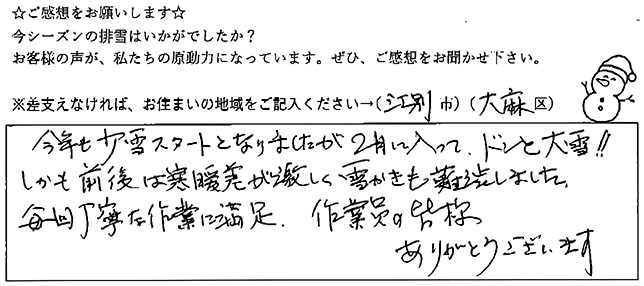 ☆ご感想をお願いします☆
今シーズンの排雪はいかがでしたか？
お客様の声が、私たちの原動力になっています。ぜひ、ご感想をお聞かせ下さい。
※差支えなければ、お住まいの地域をご記入ください→（江別市）（大麻区）
今年も少雪スタートとなりましたが2月に入って、ドンと大雪!!
しかも前後は寒暖差が激しく雪かきも難渋しました。
毎回丁寧な作業に満足。作業員の皆様
ありがとうございます